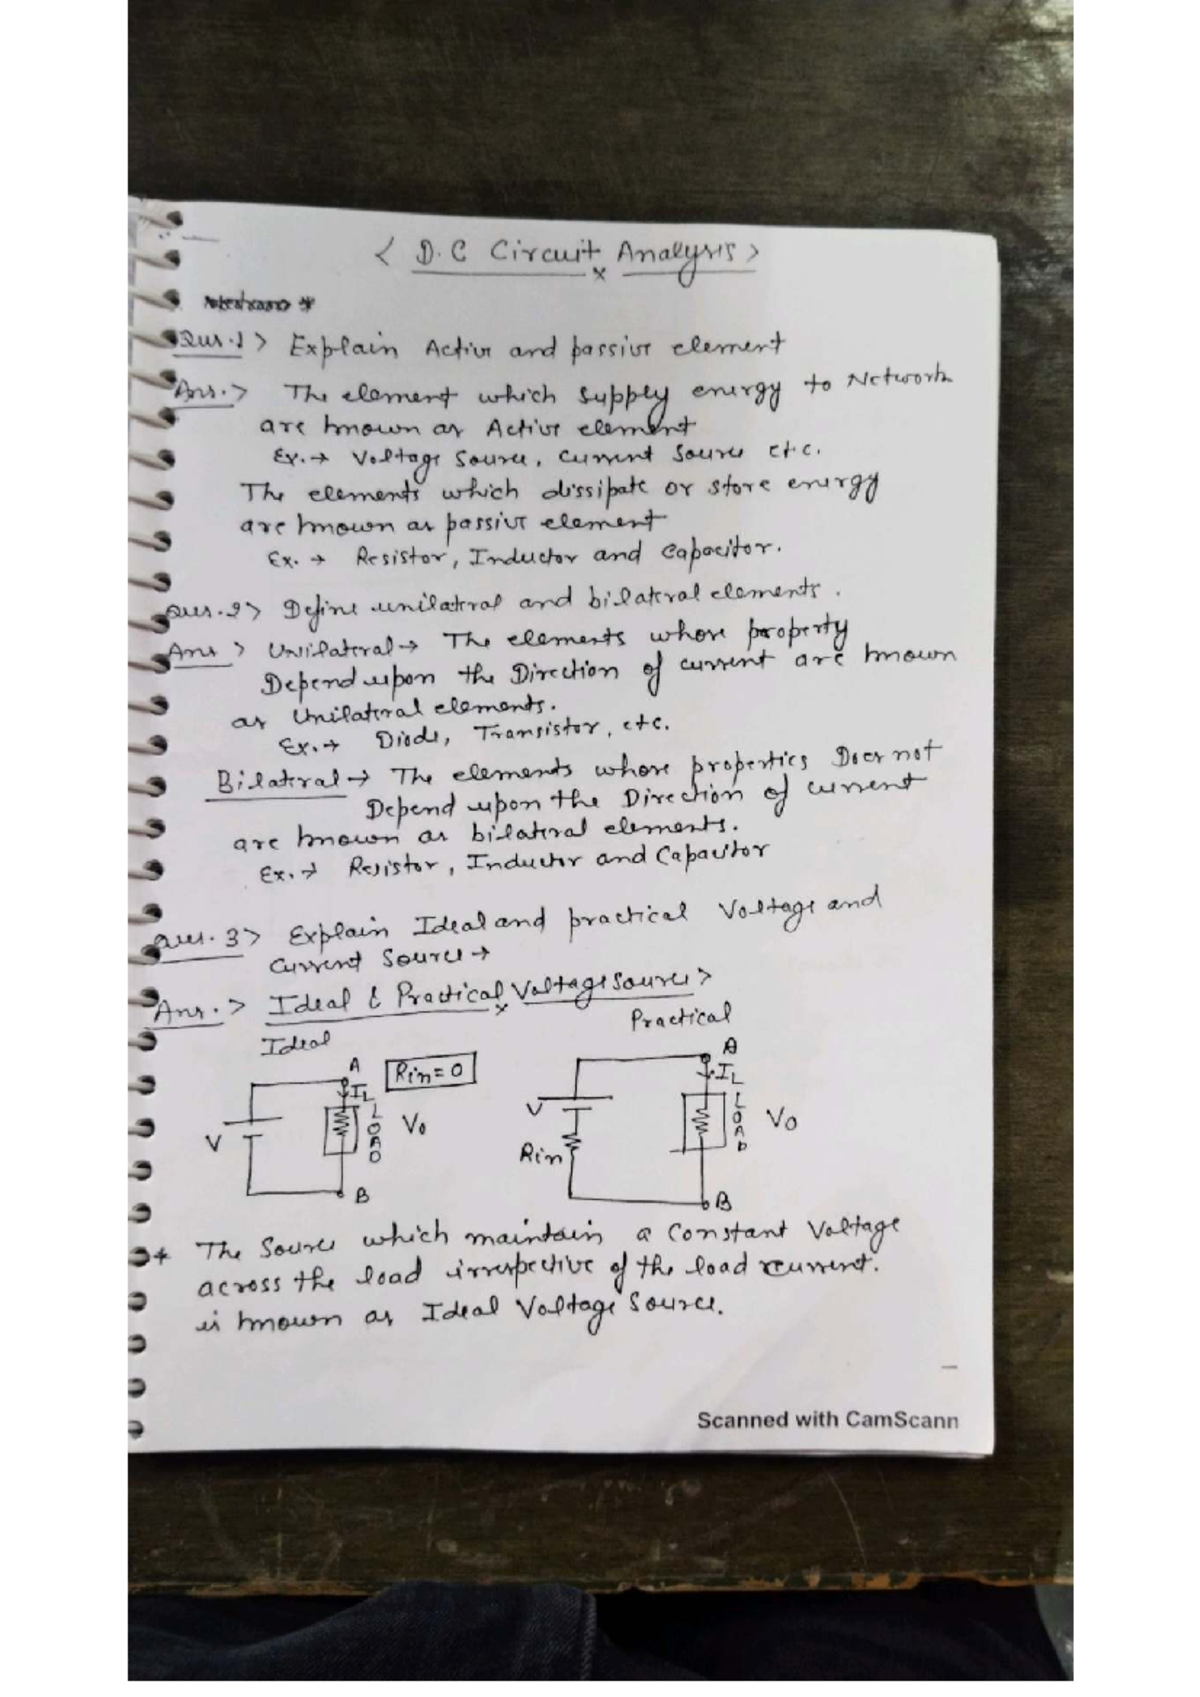 < D.C Circuit Analysis >
x
Que.1> Explain Active and passive element
Ans.> The element which supply energy to Network
are known as Active element
Ex.→ Voltage Source, Current Source etc.
The elements which dissipate or store energy
are known as passive element
Ex. → Resistor, Inductor and Capacitor.
Que.2> Define unilateral and bilateral elements.
Ans > Unilateral → The elements whose property
Depend upon the Direction of current are known
as Unilateral elements.
Ex.→ Diode, Transistor, etc.
Bilateral → The elements whose properties Does not
Depend upon the Direction of current
are known as bilateral elements.
Ex.→ Resistor, Inductor and Capacitor
Que.3> Explain Ideal and practical Voltage and
Current Source →
Ans.> Ideal & Practical Voltage Source >
x
Ideal
Practical
A
Rin=0
IL
V
LOAD
Vo
B
A
IL
V
Rin
LOAD
Vo
B
* The Source which maintain a Constant Voltage
across the load irrespective of the load current.
is known as Ideal Voltage Source.
Scanned with CamScann